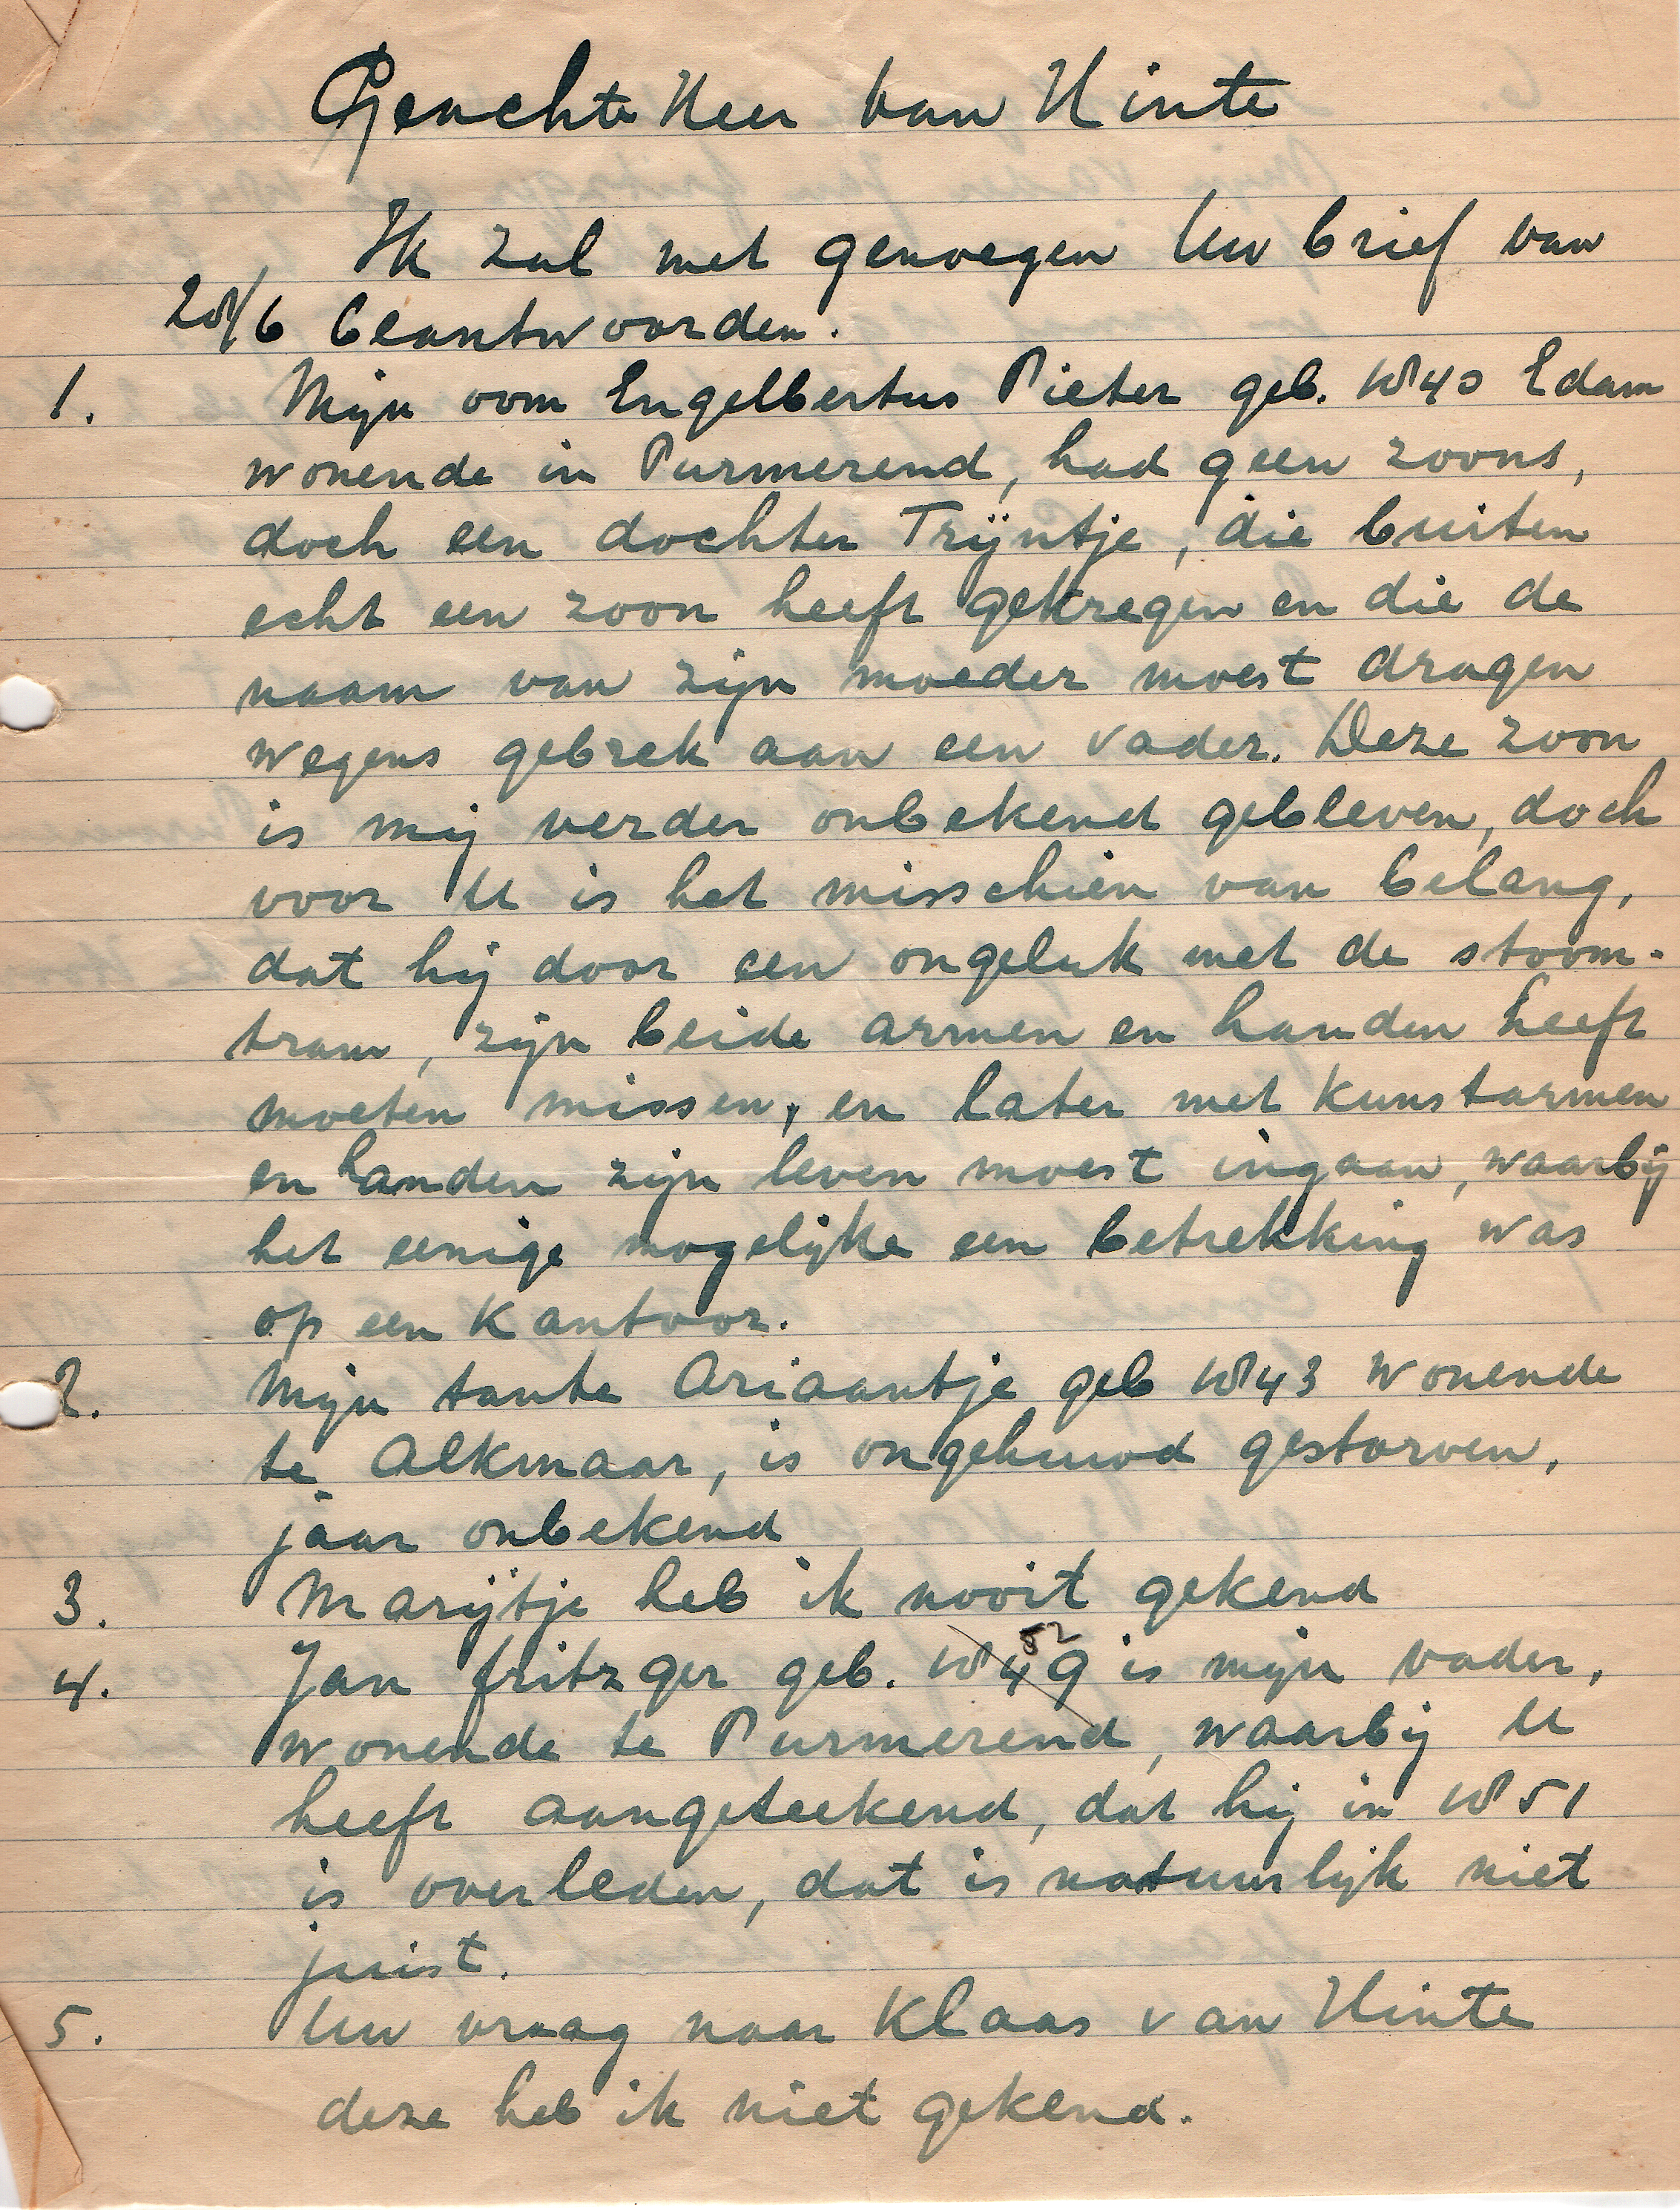 Geachte Heer van Hinte
Ik zal met genoegen Uw brief van
28/6 beantwoorden.
1. Mijn oom Engelbertus Pieter geb. 1840 Edam
wonende in Purmerend, had geen zoons,
doch een dochter Trijntje, die buiten
echt een zoon heeft gekregen en die de
naam van zijn moeder moest dragen
wegens gebrek aan een vader. Deze zoon
is mij verder onbekend gebleven, doch
voor U is het misschien van belang,
dat hij door een ongeluk met de stoom-
tram, zijn beide armen en handen heeft
moeten missen, en later met kunstarmen
en handen zijn leven moest ingaan, waarbij
het eenige mogelijke een betrekking was
op een kantoor.
2. Mijn tante Ariaantje geb 1843 wonende
te Alkmaar, is ongehuwd gestorven,
jaar onbekend
3. Marijtje heb ik nooit gekend
52
4. Jan fritzger geb. 1849 is mijn vader,
wonende te Purmerend, waarbij U
heeft aangeteekend, dat hij in 1851
is overleden, dat is natuurlijk niet
juist.
5. Uw vraag naar Klaas van Hinte
deze heb ik niet gekend.